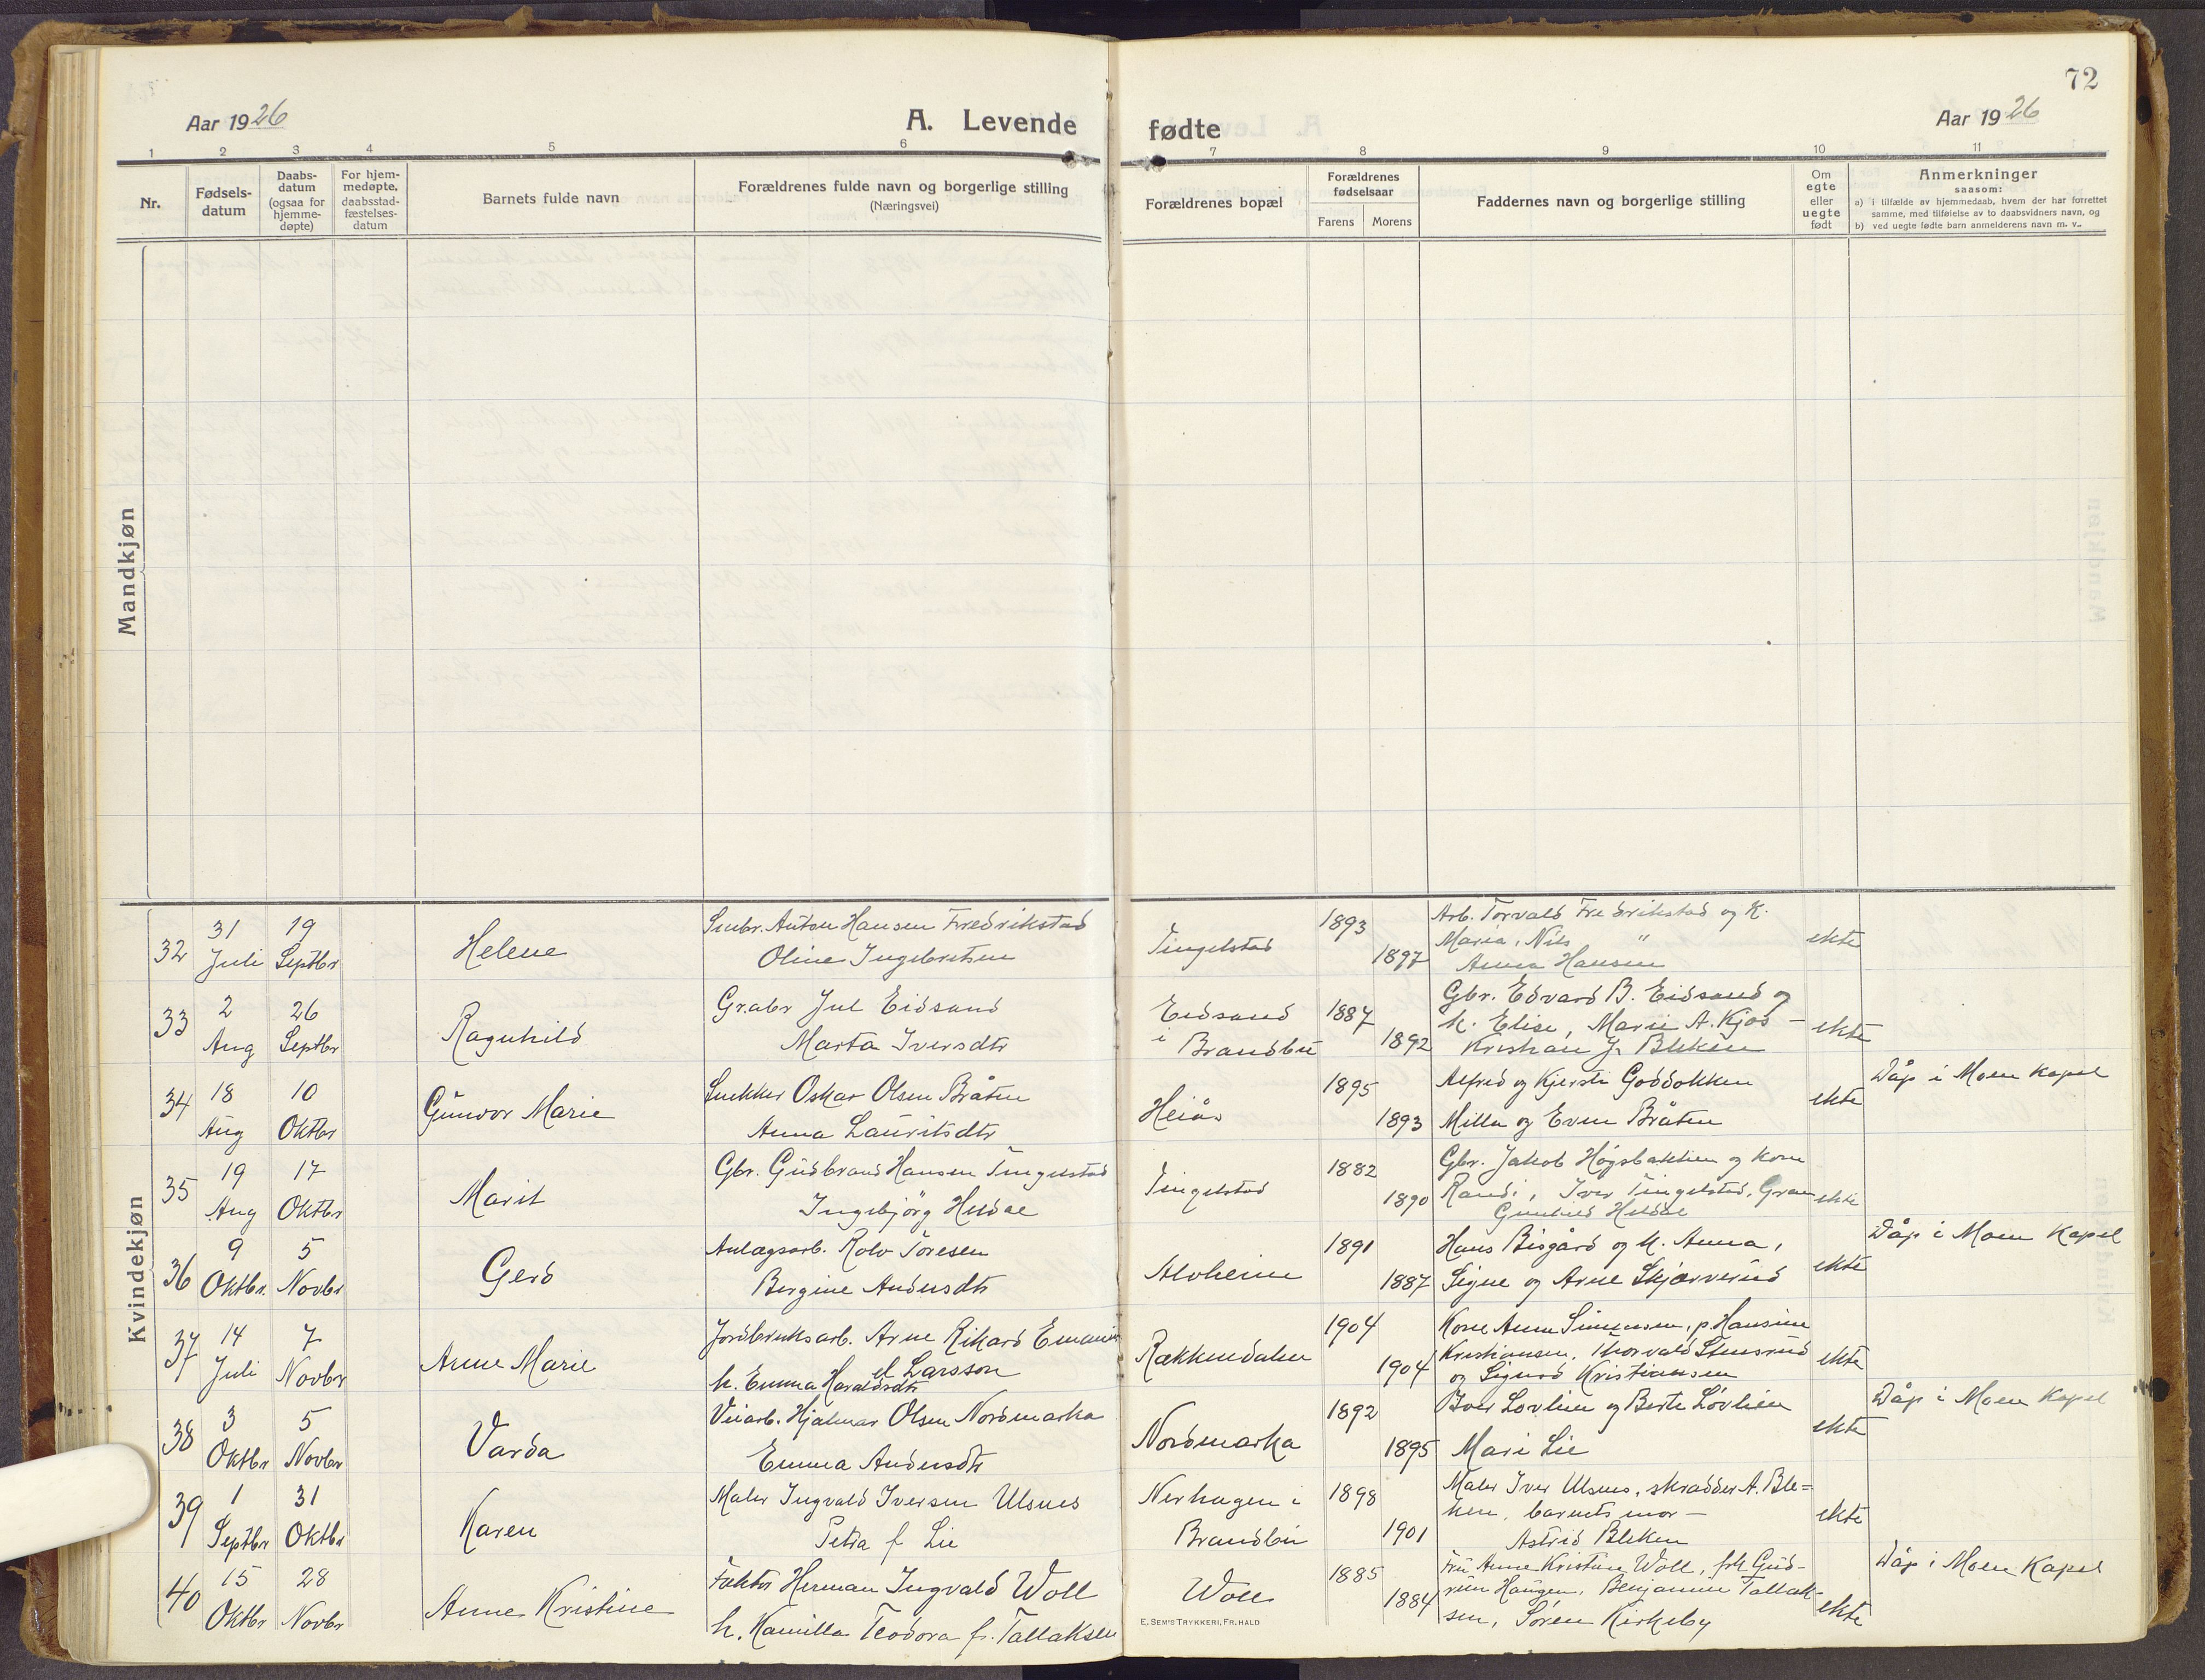 72
Aar 1926
A. Levende
fødte
Aar 1926
1 2 3 4 5 6 7 8 9 10 11
Nr.
Fødsels-
datum
Daabs-
datum
(ogsaa for
hjemme-
døpte)
For hjem-
medøpte,
daabsstad-
fæstelses-
datum
Barnets fulde navn
Forældrenes fulde navn og borgerlige stilling
(Næringsvei)
Forældrenes bopæl
Forældrenes
fødselsaar
Farens Morens
Faddernes navn og borgerlige stilling
Om
egte
eller
uegte
født
Anmerkninger
saasom:
a) i tilfælde av hjemmedaab, hvem der har forrettet
samme, med tilføielse av to daabsvidners navn, og
b) ved uegte fødte barn anmelderens navn m. v.
Mandkjøn
Kvindekjøn
32
31
Juli
19
Septbr
Helene
Smbr. Anton Hansen Fredrikstad
Oline Ingebretsen
Tingelstad
1893
1897
Arb. Torvald Fredrikstad og k.
Maria, Nils "
Anna Hansen
ekte
33
2
Aug
26
Septbr
Ragnhild
Grabr Jul Eidsand
Marta Iversdtr
Eidsand
i Brandbu
1887
1892
Gbr. Edvard B. Eidsand og
k. Elise, Marie A. Kjos -
Kristian J. Bleken
ekte
34
18
Aug
10
Oktbr
Gunvor Marie
Snekker Oskar Olsen Bråten
Anna Lauritsdtr
Heiås
1895
1893
Alfred og Kjersti Goddokken
Milla og Even Bråten
ekte
Dåp i Moen Kapel
35
19
Aug
17
Oktbr
Marit
Gbr. Gudbrand Hansen Tingelstad
Ingebjörg Heldal
Tingelstad
1882
1890
Gbr. Jakob Högsbakken og kone
Randi, Iver Tingelstad, Gran
Gunhild Heldal
ekte
36
9
Oktbr.
5
Novbr
Gerd
Anlægsarb. Rolv Toresen
Bergine Andersdtr
Alvheim
1891
1887
Hans Bisgård og k. Anna,
Signe og Arne Skjærverud
ekte
Dåp i Moen Kapel
37
14
Juli
7
Novbr
Anne Marie
Jordbruksarb. Arne Rikard Emanu
el Larsson
h. Emma Haraldsdtr
Rækkendalen
1904
1904
Kone Anna Simensen, p. Hansine
Kristiansen, Thorvald Stensrud
og Sigurd Kristiansen
ekte
38
3
Oktbr
5
Novbr
Varda
Veiarb. Hjalmar Olsen Nordmarka
Emma Andersdtr
Nordmarka
1892
1895
Iver Lovlien og Berte Lövlien
Mari Lie
ekte
Dåp i Moen Kapel
39
1
Septbr
31
Oktbr
Karen
Maler Ingvald Iversen Ulsnes
Petra f. Lie
Nerhagen i
Brandbu
1898
1901
Maler Iver Ulsnes, skrædder A. Ble=
ken, barnets mor -
Astrid Bleken
ekte
40
15
Oktbr
28
Novbr
Anne Kristine
Faktor Herman Ingvald Woll
h. Kamilla Teodora f. Tallaksen
Woll
1885
1884
Fru Anne Kristine Woll, frk Gud-
run Haugen, Benjamin Tallak-
sen, Sören Kirkeby
ekte
Dåp i Moen Kapel
E. SEM'S TRYKKERI, FR. HALD